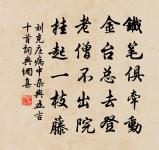 鐵筆俱牽動
金台总去登
老僧不出院
挂起一枝藤
刘克庄病中雜興五言
十首詞典網喜